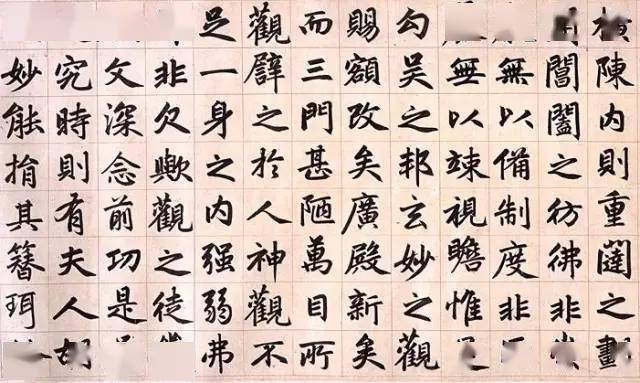 陳內則重闥之畫
閶闔之彷彿非
無以備制度非
無以竦視瞻惟
勾吳之邦玄妙之觀
賜額改矣廣殿新矣
而三門甚陋萬目所
觀譬之於人神觀不
足一身之內强弱弗
非欠歟觀之徒
文深念前功是
究時則有夫人胡
妙能捐其簪珥